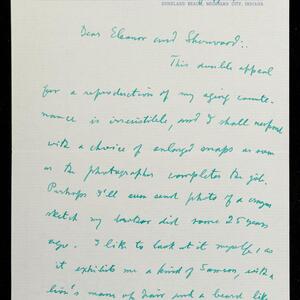 DUNELAND BEACH, MICHIGAN CITY, INDIANA
Dear Eleanor and Sherwood:
This double appeal
for a reproduction of my aging counte-
nance is irresistible, and I shall respond
with a choice of enlarged snaps as soon
as the photographer completes the job.
Perhaps I'll even send photo of a crayon
sketch my brother did some 25 years
ago. I like to look at it myself, as
it exhibits me a kind of Samson, with a
lion's mane of hair and a beard like